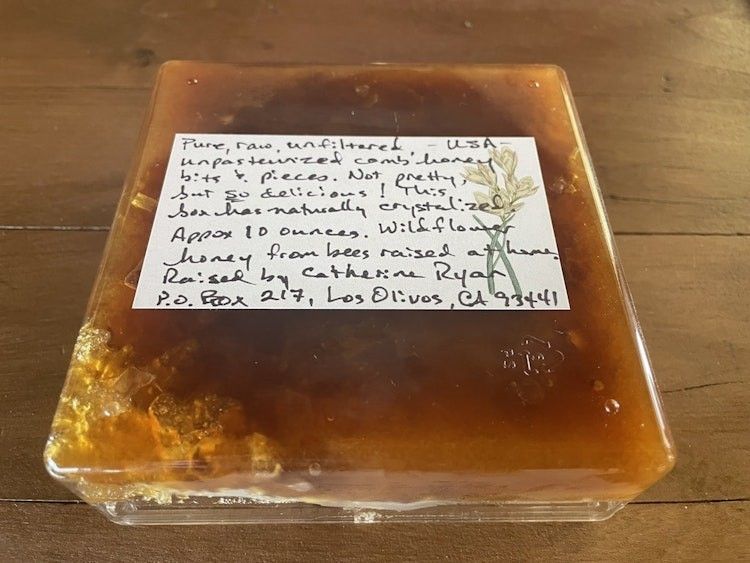 Pure, raw, unfiltered, - USA -
unpasteurized comb honey
bits & pieces. Not pretty,
but so delicious! This
box has naturally crystalized
Appox 10 ounces. Wildflower
honey from bees raised at home.
Raised by Catherine Ryan
P.O. Box 217, Los Olivos, CA 93441